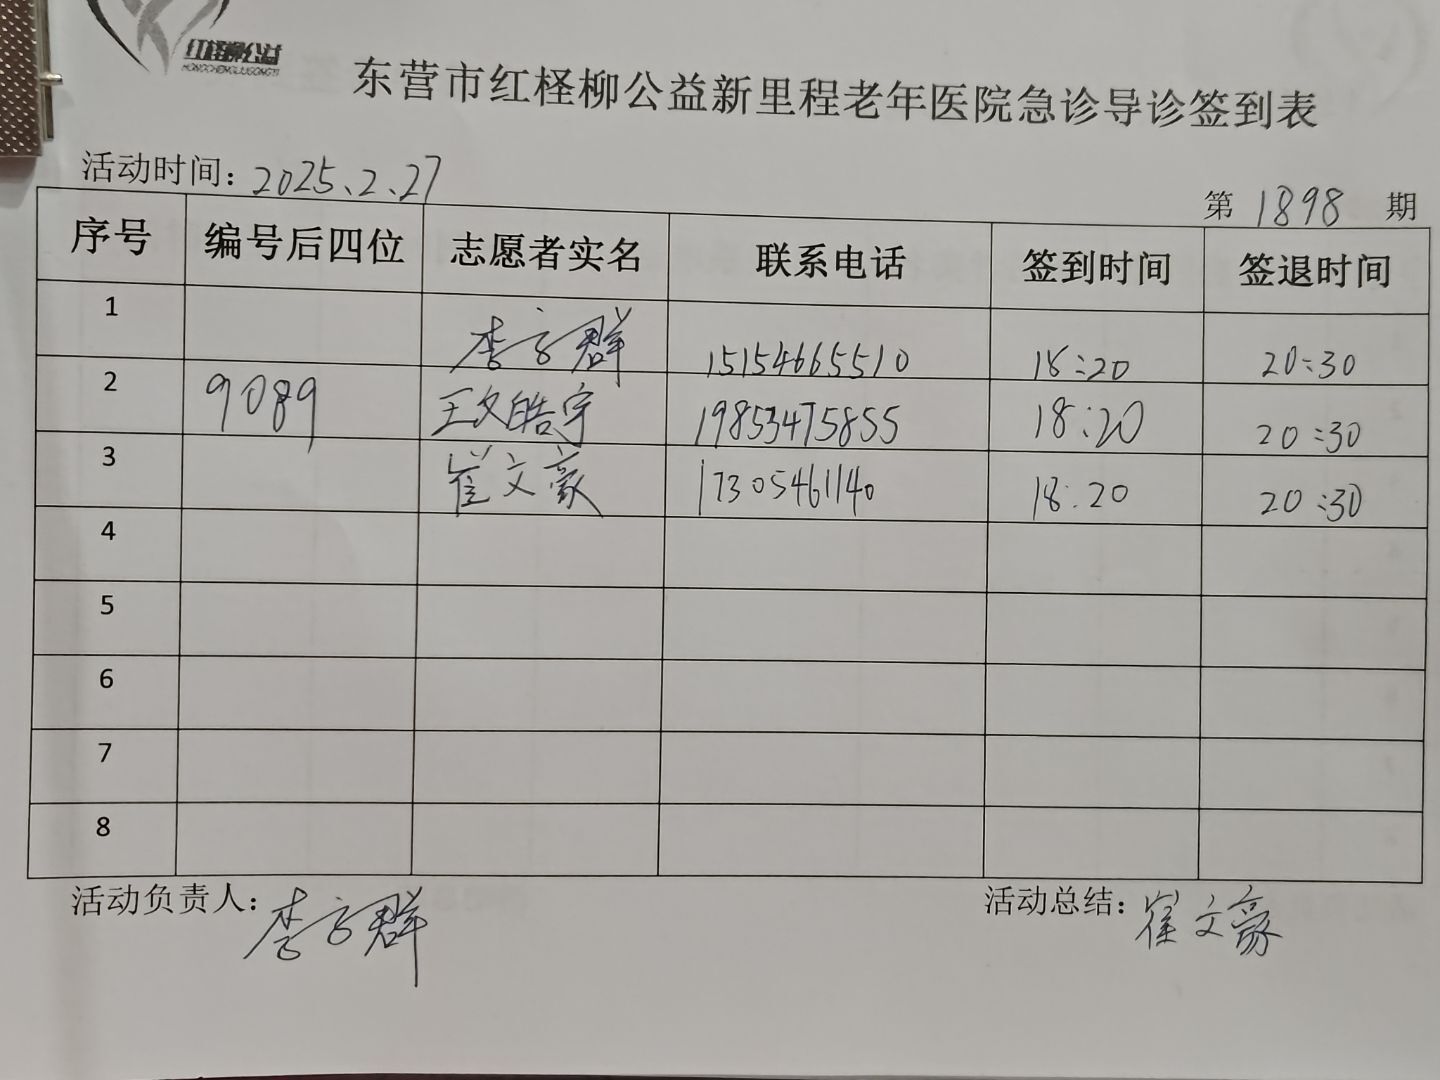 红柽柳公益
HONGCHENGLIUGONGYI
东营市红柽柳公益新里程老年医院急诊导诊签到表
活动时间：2025.2.27
第 1898 期
序号 编号后四位 志愿者实名 联系电话 签到时间 签退时间
1 李方群 15154665510 18:20 20:30
2 9089 王文皓宇 19853475855 18:20 20:30
3 崔文豪 17305461140 18:20 20:30
4
5
6
7
8
活动负责人：李方群 活动总结：崔文豪